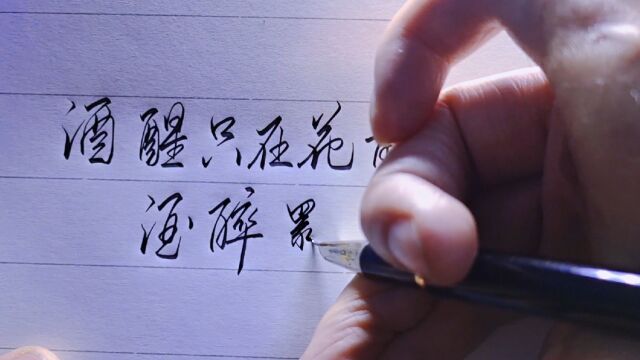 酒醒只在花
酒醉